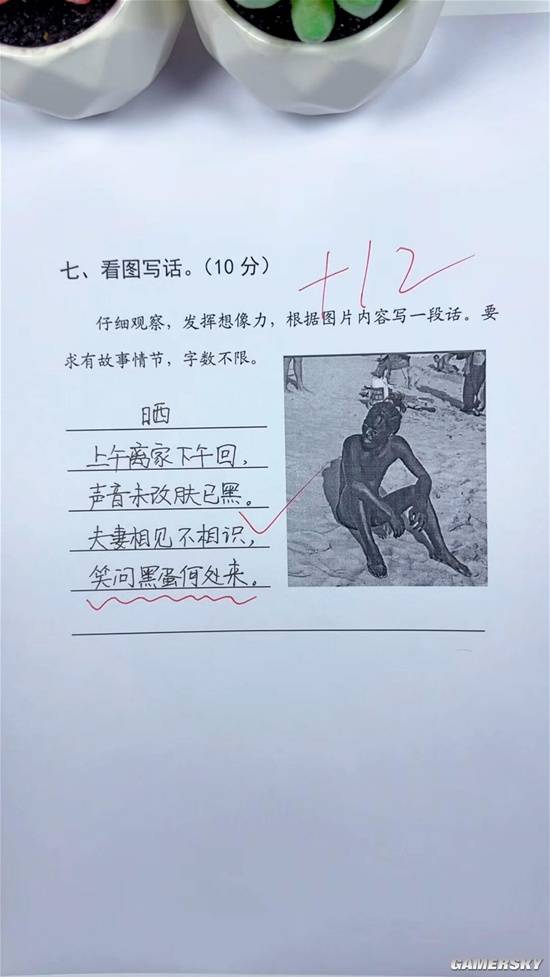 七、看图写话。(10分)
+12
仔细观察，发挥想像力，根据图片内容写一段话。要
求有故事情节，字数不限。
晒
上午离家下午回，
声音未改肤已黑。
夫妻相见不相识，
笑问黑蛋何处来。
GAMERSKY